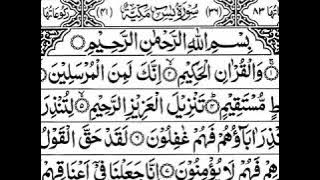 سُوْرَةُ يٰسٓ مَكِّيَّةٌ (٣٦) (٤١) ٨٣
بِسْمِ اللّٰهِ الرَّحْمٰنِ الرَّحِيْمِ
وَالْقُرْاٰنِ الْحَكِيْمِ اِنَّكَ لَمِنَ الْمُرْسَلِيْنَ
مُّسْتَقِيْمٍ تَنْزِيْلَ الْعَزِيْزِ الرَّحِيْمِ لِتُنْذِرَ
اٰبَآؤُهُمْ فَهُمْ غٰفِلُوْنَ لَقَدْ حَقَّ الْقَوْلُ
فَهُمْ لَا يُؤْمِنُوْنَ اِنَّا جَعَلْنَا فِيْٓ اَعْنَاقِهِمْ